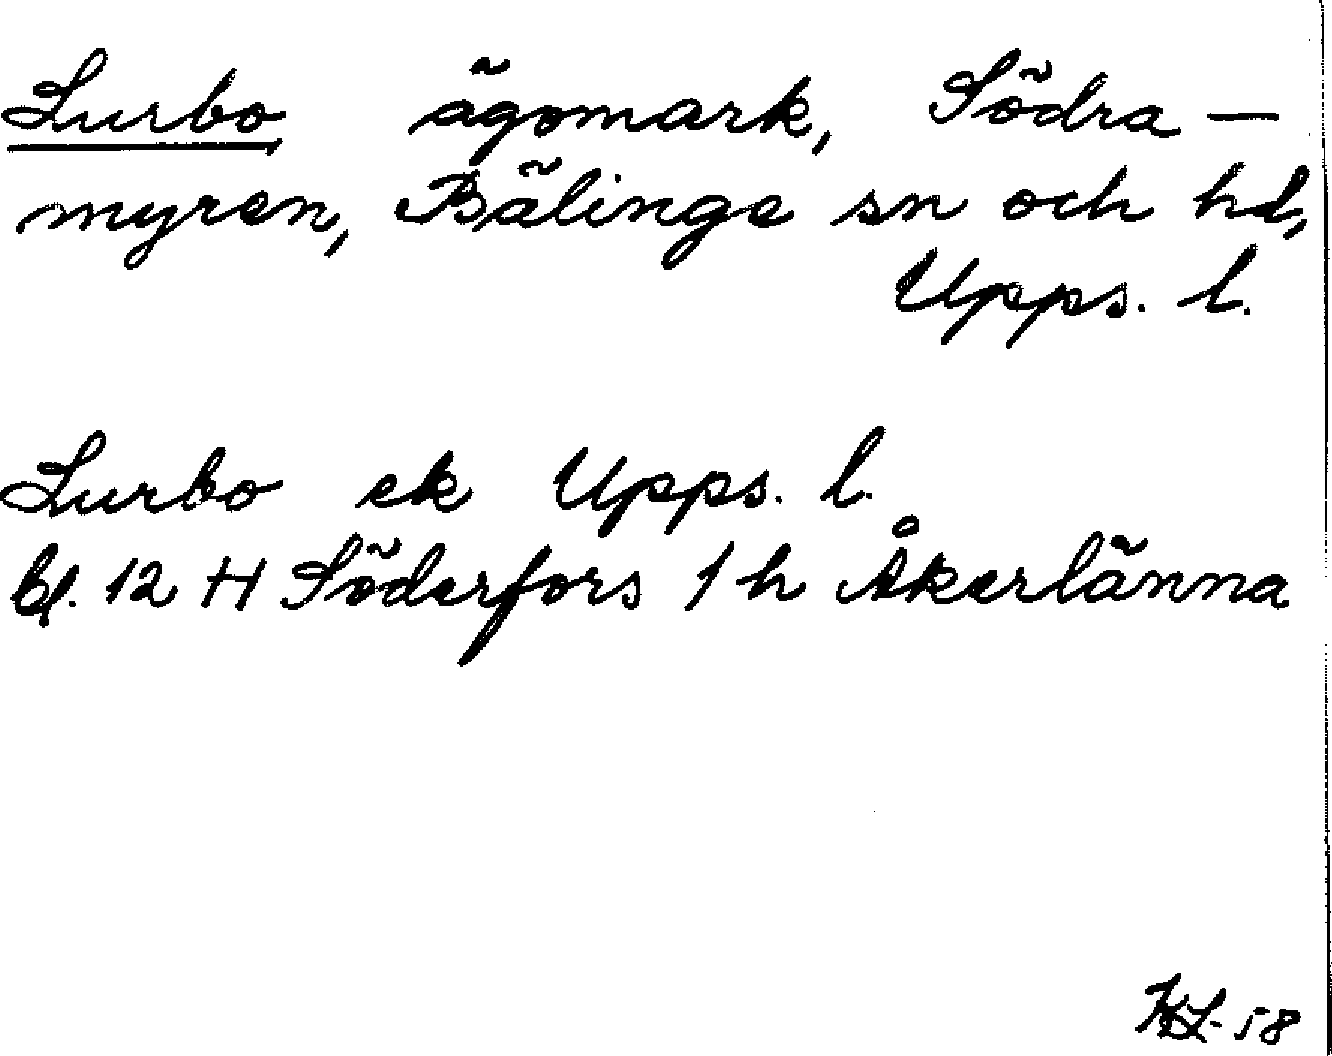 Lurbo, ägomark, Södra-
myren, Bälinge sn och hd,
Upps. l.
Lurbo ek Upps. l.
bl. 12 H Söderfors 1 h Åkerlänna